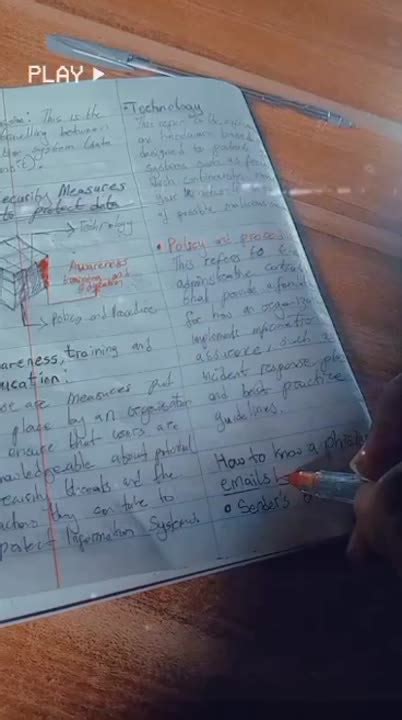 PLAY
This is the
travelling between
system (data
Security Measures
to protect data
Technology
Awareness
training and
education
Policy and Procedure
awareness, training and
education:
are measures put
place by an organisation
ensure that users are
knowledgeable about potential
security threats and the
actions they can take to
protect Information Systems
• Technology
This refer to
or hardware based
designed to protect
systems such as
of possible malicious
• Policy and
This refers to
administrative
that provide a
for how an
implements
assurance, such
incident response
and best practice
guidelines.
How to know a
emails
• Sender's